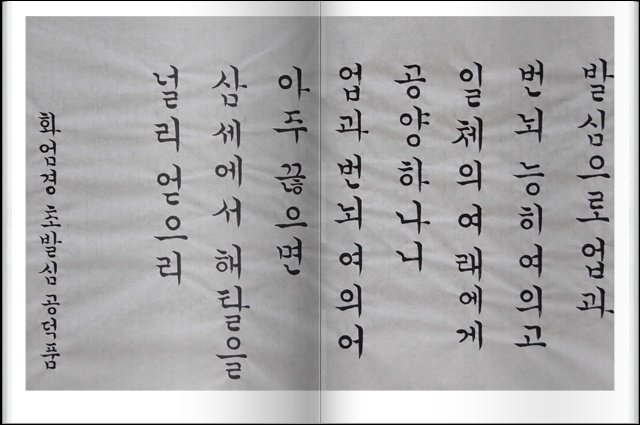 발심으로 업과
번뇌 능히 여의고
일체의 여래에게
공양하나니
업과 번뇌 여의어
아주 끊으면
삼세에서 해탈을
널리 얻으리
화엄경 초발심 공덕품